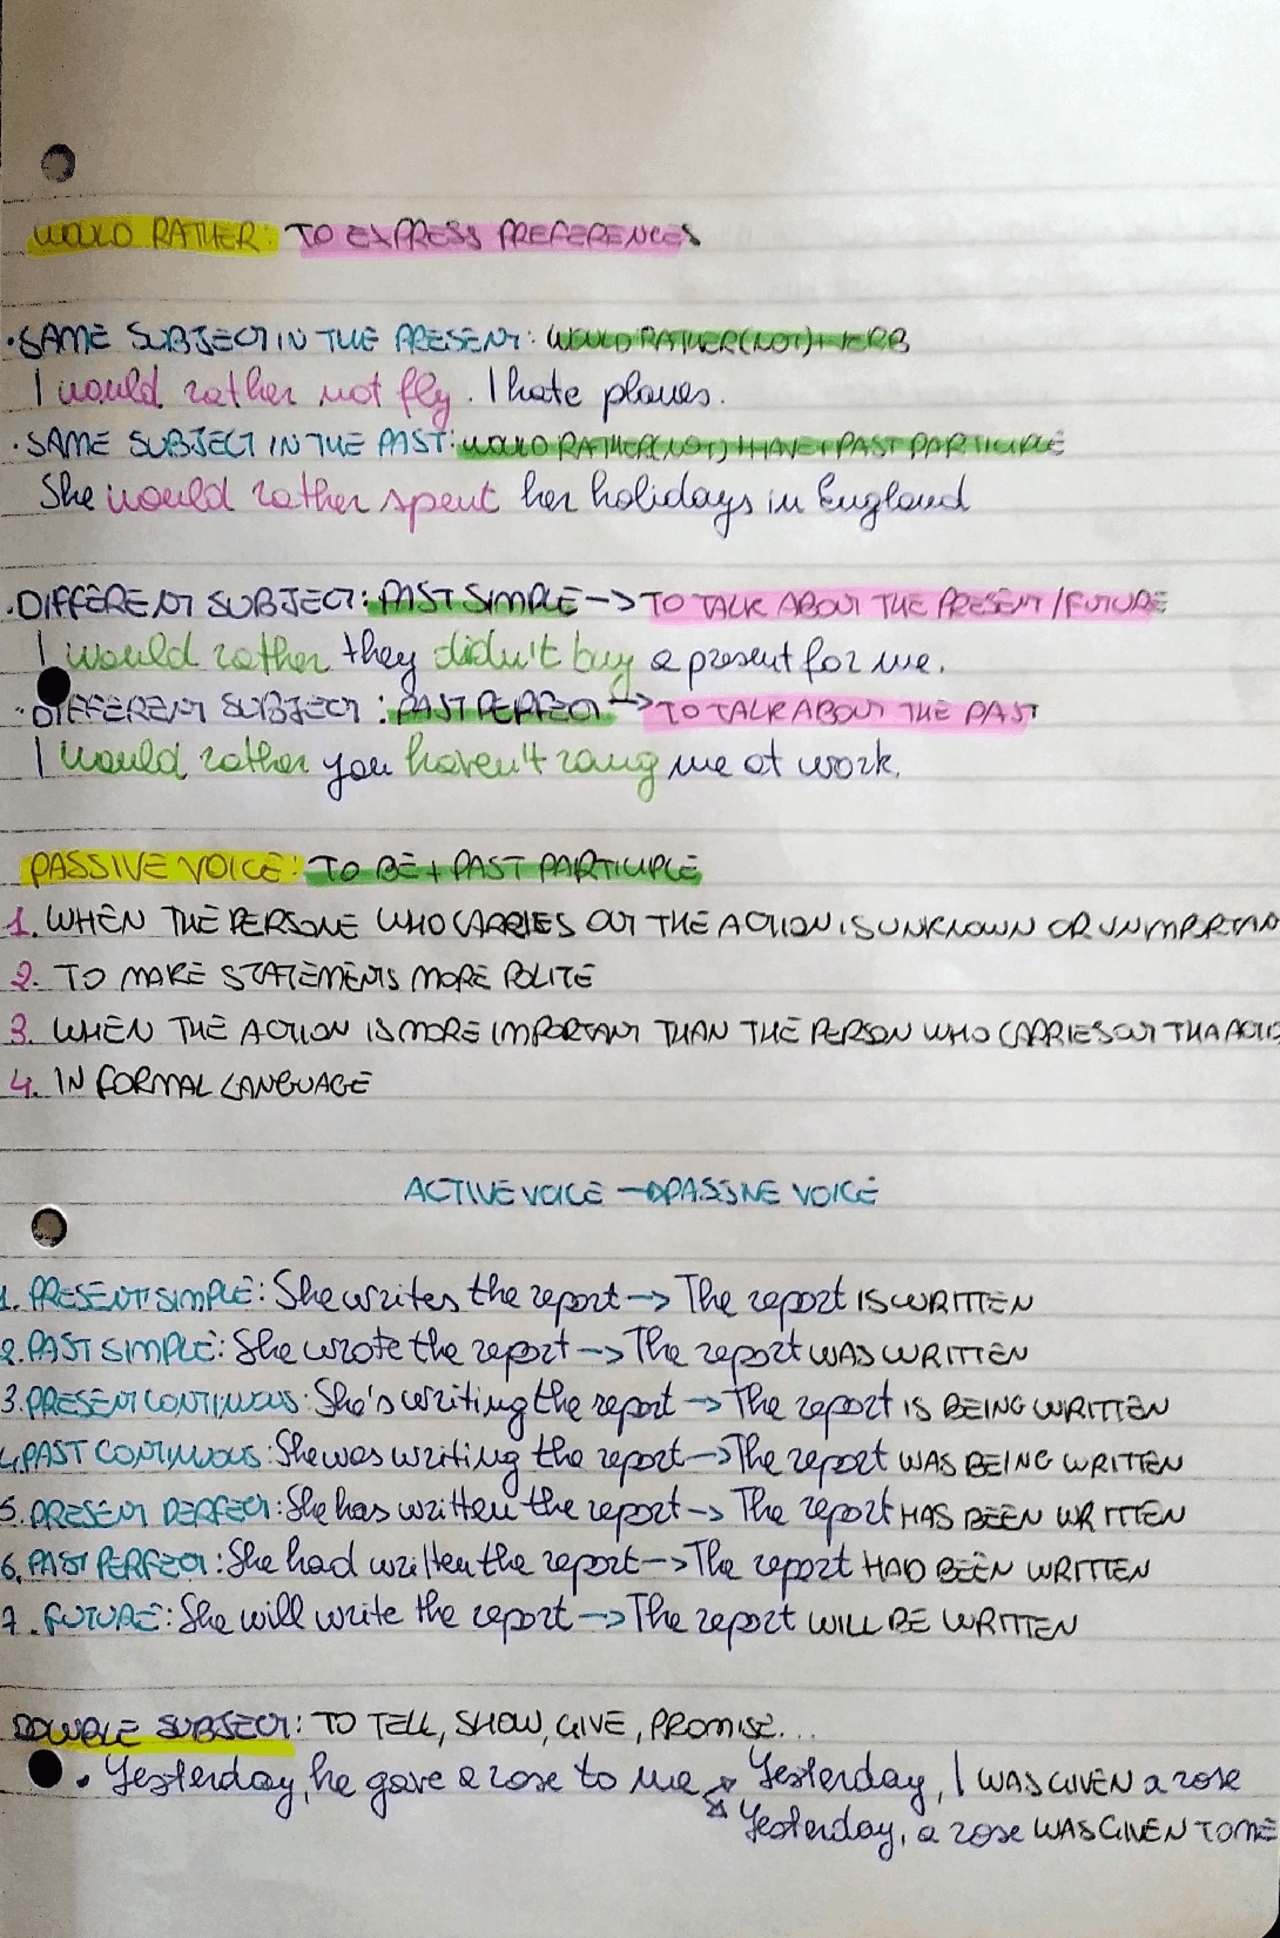 WOULD RATHER: TO EXPRESS PREFERENCES
• SAME SUBJECT IN THE PRESENT: WOULD RATHER (NOT) + VERB
I would rather not fly. I hate planes.
• SAME SUBJECT IN THE PAST: WOULD RATHER (NOT) + HAVE + PAST PARTICIPLE
She would rather spent her holidays in England
• DIFFERENT SUBJECT: PAST SIMPLE -> TO TALK ABOUT THE PRESENT/FUTURE
I would rather they didn't buy a present for me.
• DIFFERENT SUBJECT: PAST PERFECT -> TO TALK ABOUT THE PAST
I would rather you haven't rang me at work.
PASSIVE VOICE: TO BE + PAST PARTICIPLE
1. WHEN THE PERSONE WHO CARRIES OUT THE ACTION IS UNKNOWN OR UNIMPORTAN
2. TO MAKE STATEMENTS MORE POLITE
3. WHEN THE ACTION IS MORE IMPORTANT THAN THE PERSON WHO CARRIES OUT THA ACTIO
4. IN FORMAL LANGUAGE
ACTIVE VOICE -> PASSIVE VOICE
1. PRESENT SIMPLE: She writes the report -> The report IS WRITTEN
2. PAST SIMPLE: She wrote the report -> The report WAS WRITTEN
3. PRESENT CONTINUOUS: She's writing the report -> The report IS BEING WRITTEN
4. PAST CONTINUOUS: She was writing the report -> The report WAS BEING WRITTEN
5. PRESENT PERFECT: She has written the report -> The report HAS BEEN WRITTEN
6. PAST PERFECT: She had written the report -> The report HAD BEEN WRITTEN
7. FUTURE: She will write the report -> The report WILL BE WRITTEN
DOUBLE SUBJECT: TO TELL, SHOW, GIVE, PROMISE...
• Yesterday, he gave a rose to me -> Yesterday, I WAS GIVEN a rose
-> Yesterday, a rose WAS GIVEN TO ME